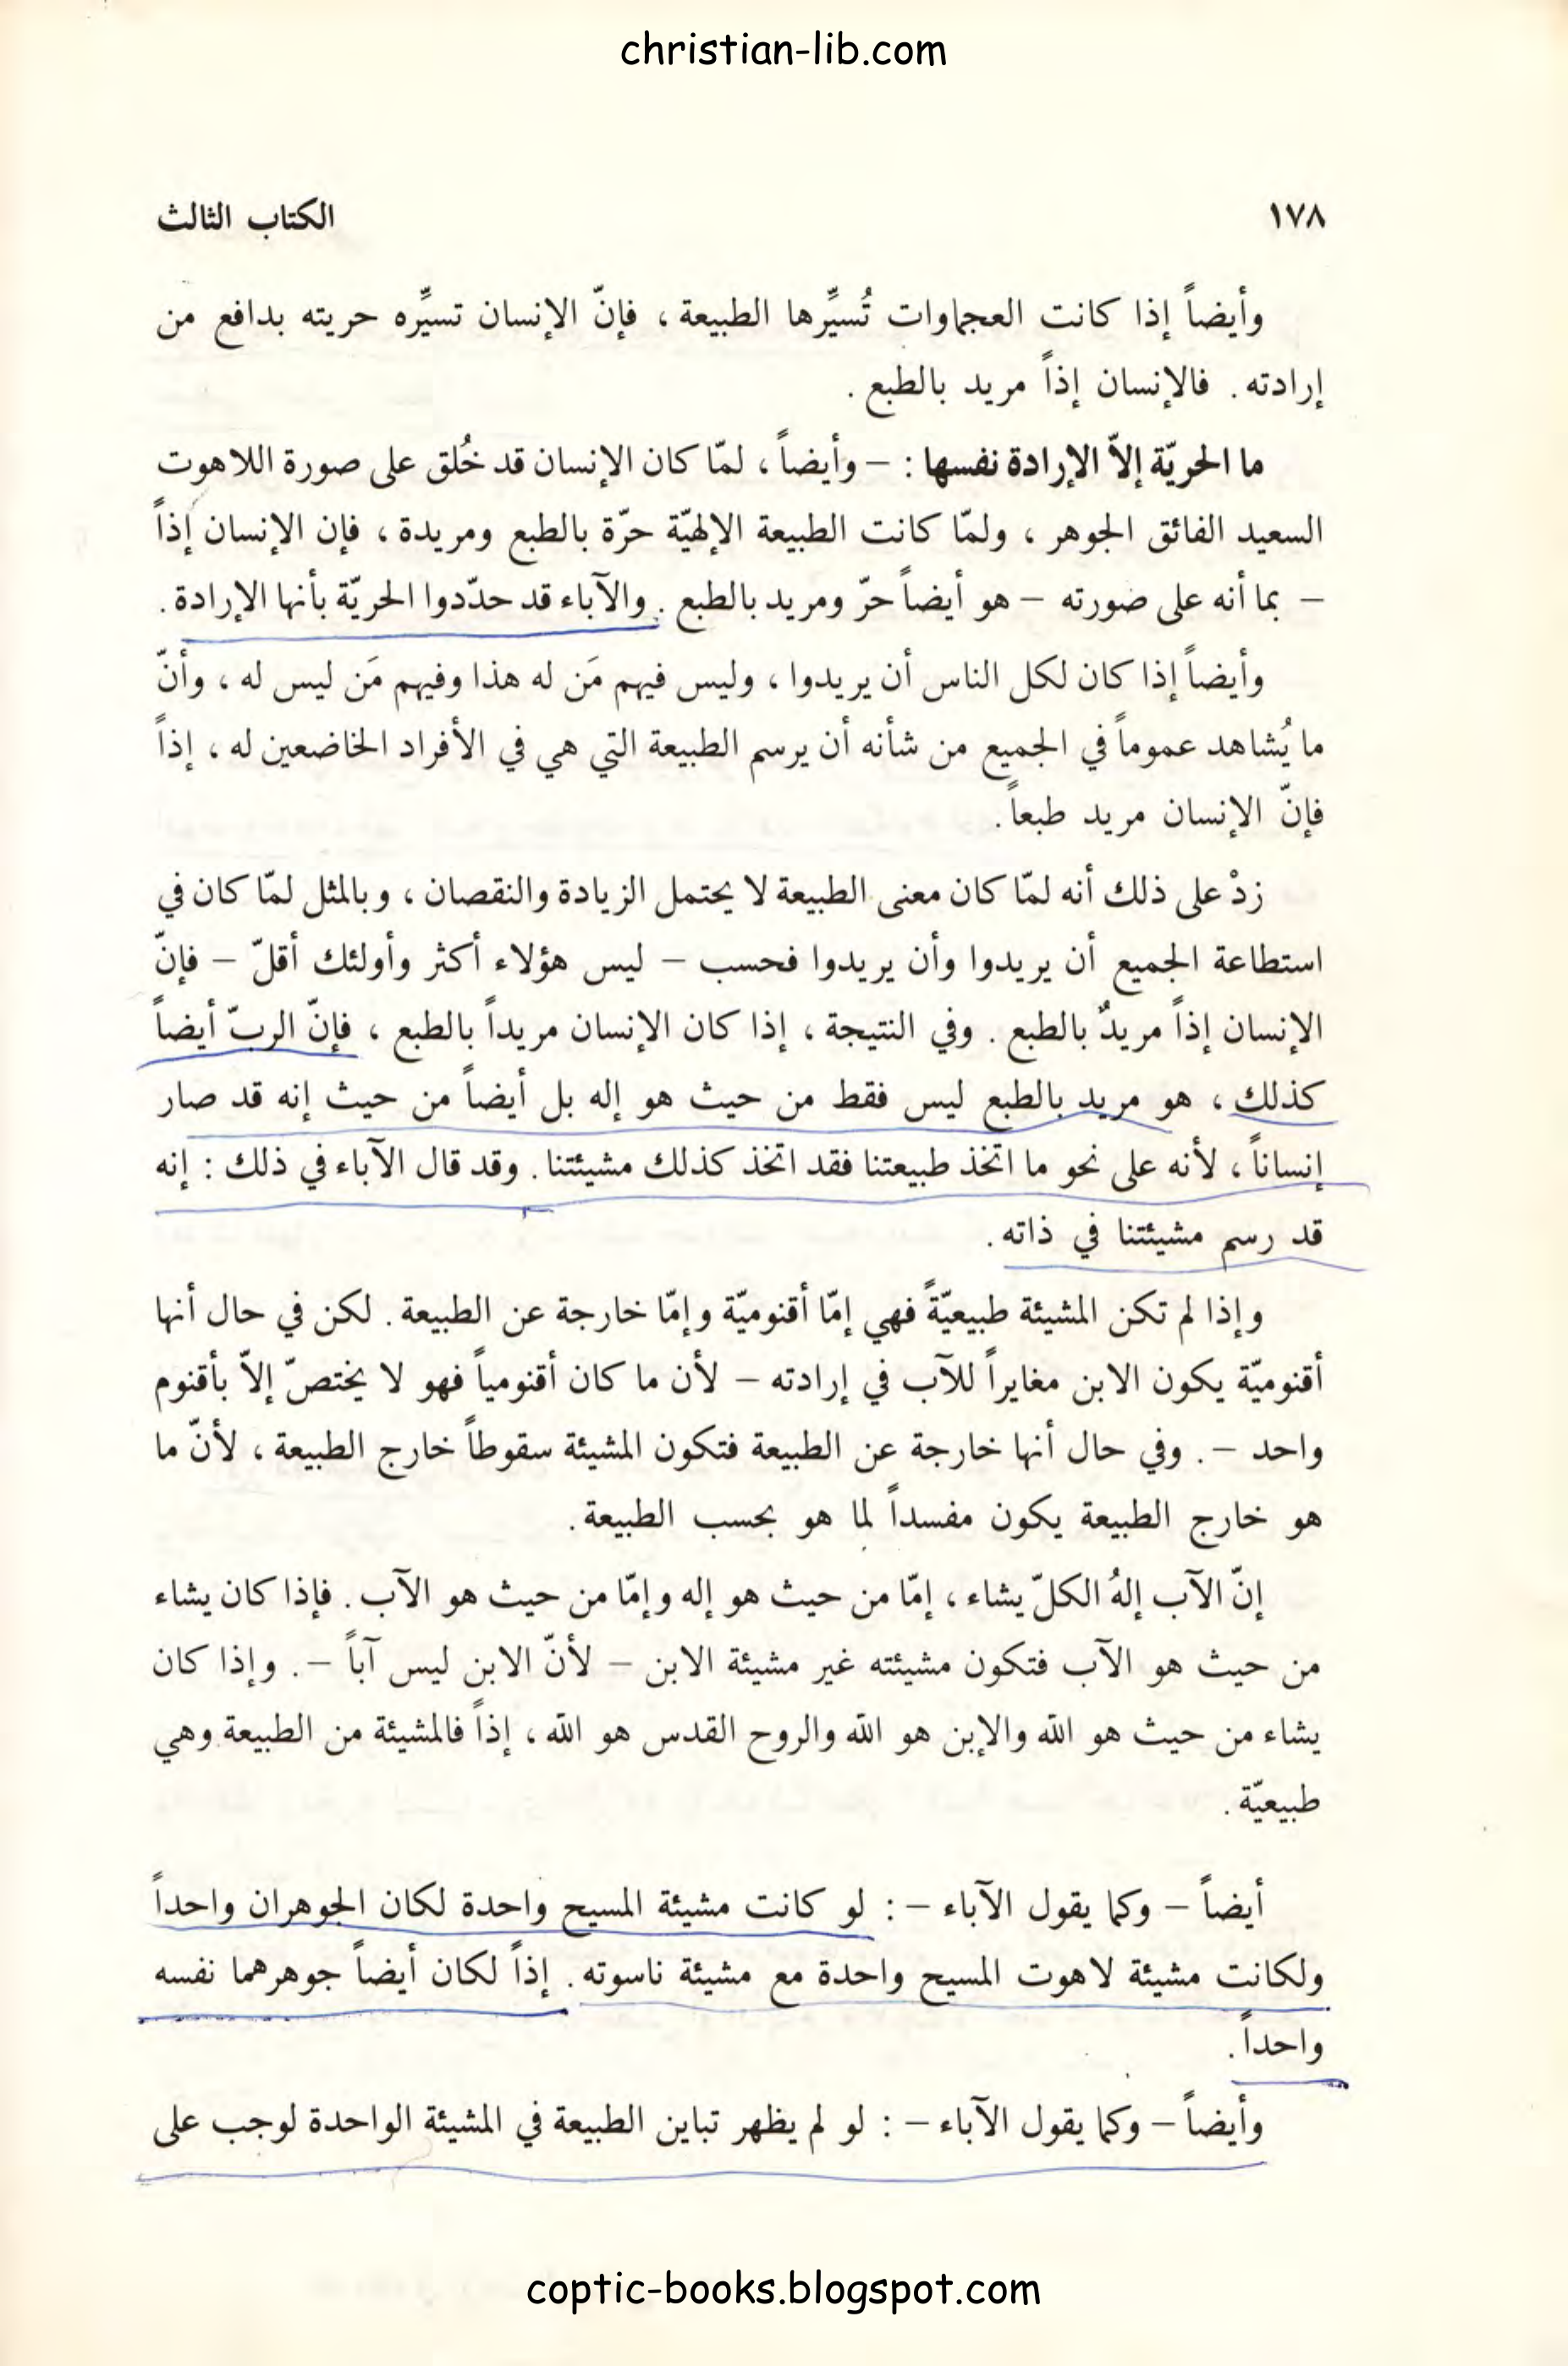 christian-lib.com
١٧٨ الكتاب الثالث
وأيضاً إذا كانت العجماوات تُسيِّرها الطبيعة ، فإنّ الإنسان تسيِّره حريته بدافع من
إرادته . فالإنسان إذاً مريد بالطبع .
ما الحريّة إلاّ الإرادة نفسها : – وأيضاً ، لمّا كان الإنسان قد خُلق على صورة اللاهوت
السعيد الفائق الجوهر ، ولمّا كانت الطبيعة الإلهيّة حرّة بالطبع ومريدة ، فإن الإنسان إذاً
– بما أنه على صورته – هو أيضاً حرّ ومريد بالطبع . والآباء قد حدّدوا الحريّة بأنها الإرادة .
وأيضاً إذا كان لكل الناس أن يريدوا ، وليس فيهم مَن له هذا وفيهم مَن ليس له ، وأنّ
ما يُشاهد عموماً في الجميع من شأنه أن يرسم الطبيعة التي هي في الأفراد الخاضعين له ، إذاً
فإنّ الإنسان مريد طبعاً .
زدْ على ذلك أنه لمّا كان معنى الطبيعة لا يحتمل الزيادة والنقصان ، وبالمثل لمّا كان في
استطاعة الجميع أن يريدوا وأن يريدوا فحسب – ليس هؤلاء أكثر وأولئك أقلّ – فإنّ
الإنسان إذاً مريدٌ بالطبع . وفي النتيجة ، إذا كان الإنسان مريداً بالطبع ، فإنّ الربّ أيضاً
كذلك ، هو مريد بالطبع ليس فقط من حيث هو إله بل أيضاً من حيث إنه قد صار
إنساناً ، لأنه على نحو ما اتخذ طبيعتنا فقد اتخذ كذلك مشيئتنا . وقد قال الآباء في ذلك : إنه
قد رسم مشيئتنا في ذاته .
وإذا لم تكن المشيئة طبيعيّةً فهي إمّا أقنوميّة وإمّا خارجة عن الطبيعة . لكن في حال أنها
أقنوميّة يكون الابن مغايراً للآب في إرادته – لأن ما كان أقنومياً فهو لا يختصّ إلاّ بأقنوم
واحد – . وفي حال أنها خارجة عن الطبيعة فتكون المشيئة سقوطاً خارج الطبيعة ، لأنّ ما
هو خارج الطبيعة يكون مفسداً لما هو بحسب الطبيعة .
إنّ الآب إلهُ الكلّ يشاء ، إمّا من حيث هو إله وإمّا من حيث هو الآب . فإذا كان يشاء
من حيث هو الآب فتكون مشيئته غير مشيئة الابن – لأنّ الابن ليس آباً – . وإذا كان
يشاء من حيث هو الله والإبن هو الله والروح القدس هو الله ، إذاً فالمشيئة من الطبيعة وهي
طبيعيّة .
أيضاً – وكما يقول الآباء – : لو كانت مشيئة المسيح واحدة لكان الجوهران واحداً
ولكانت مشيئة لاهوت المسيح واحدة مع مشيئة ناسوته . إذاً لكان أيضاً جوهرهما نفسه
واحداً .
وأيضاً – وكما يقول الآباء – : لو لم يظهر تباين الطبيعة في المشيئة الواحدة لوجب على
coptic-books.blogspot.com